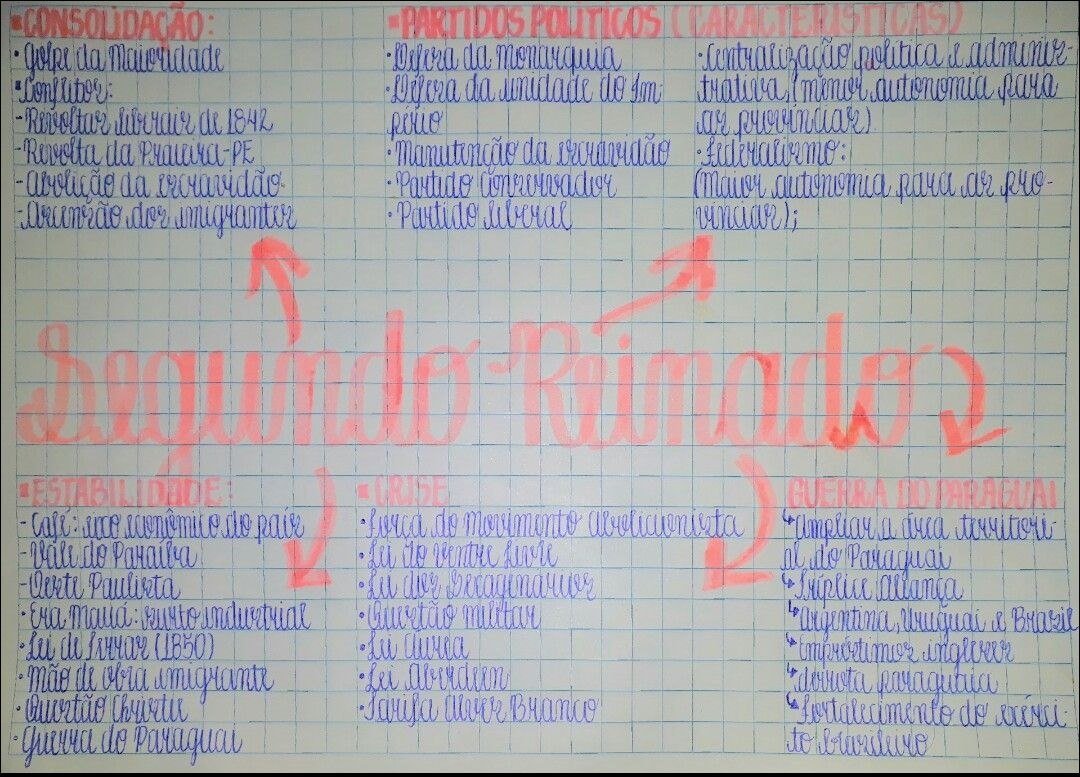 ▪CONSOLIDAÇÃO:
• Golpe da Maioridade
▪Conflitos:
- Revoltas liberais de 1842
- Revolta da Praieira-PE
- Abolição da escravidão.
- Ascensão dos imigrantes
▪PARTIDOS POLÍTICOS (CARACTERÍSTICAS)
• Defesa da Monarquia
• Defesa da unidade do Im
pério
• Manutenção da escravidão
• Partido Conservador
• Partido liberal
• Centralização política e adminis-
trativa, (menor autonomia para
as províncias)
• Federalismo:
(Maior autonomia para as pro-
víncias);
Segundo Reinado
▪ESTABILIDADE:
- Café: eixo econômico do país
- Vale do Paraíba
- Oeste Paulista
• Era Mauá: surto industrial
• Lei de Terras (1850)
• Mão de obra imigrante
• Questão Christie
• Guerra do Paraguai
▪CRISE
• Força do Movimento abolicionista
• Lei do Ventre Livre
• Lei dos Sexagenários
• Questão militar
• Lei Áurea
• Lei Aberdeen
• Tarifa Alves Branco
GUERRA DO PARAGUAI
↳ Ampliar a área territori-
al do Paraguai
↳ Tríplice Aliança
↳ Argentina, Uruguai e Brasil
↳ Empréstimos ingleses
↳ derrota paraguaia
↳ Fortalecimento do exérci-
to brasileiro